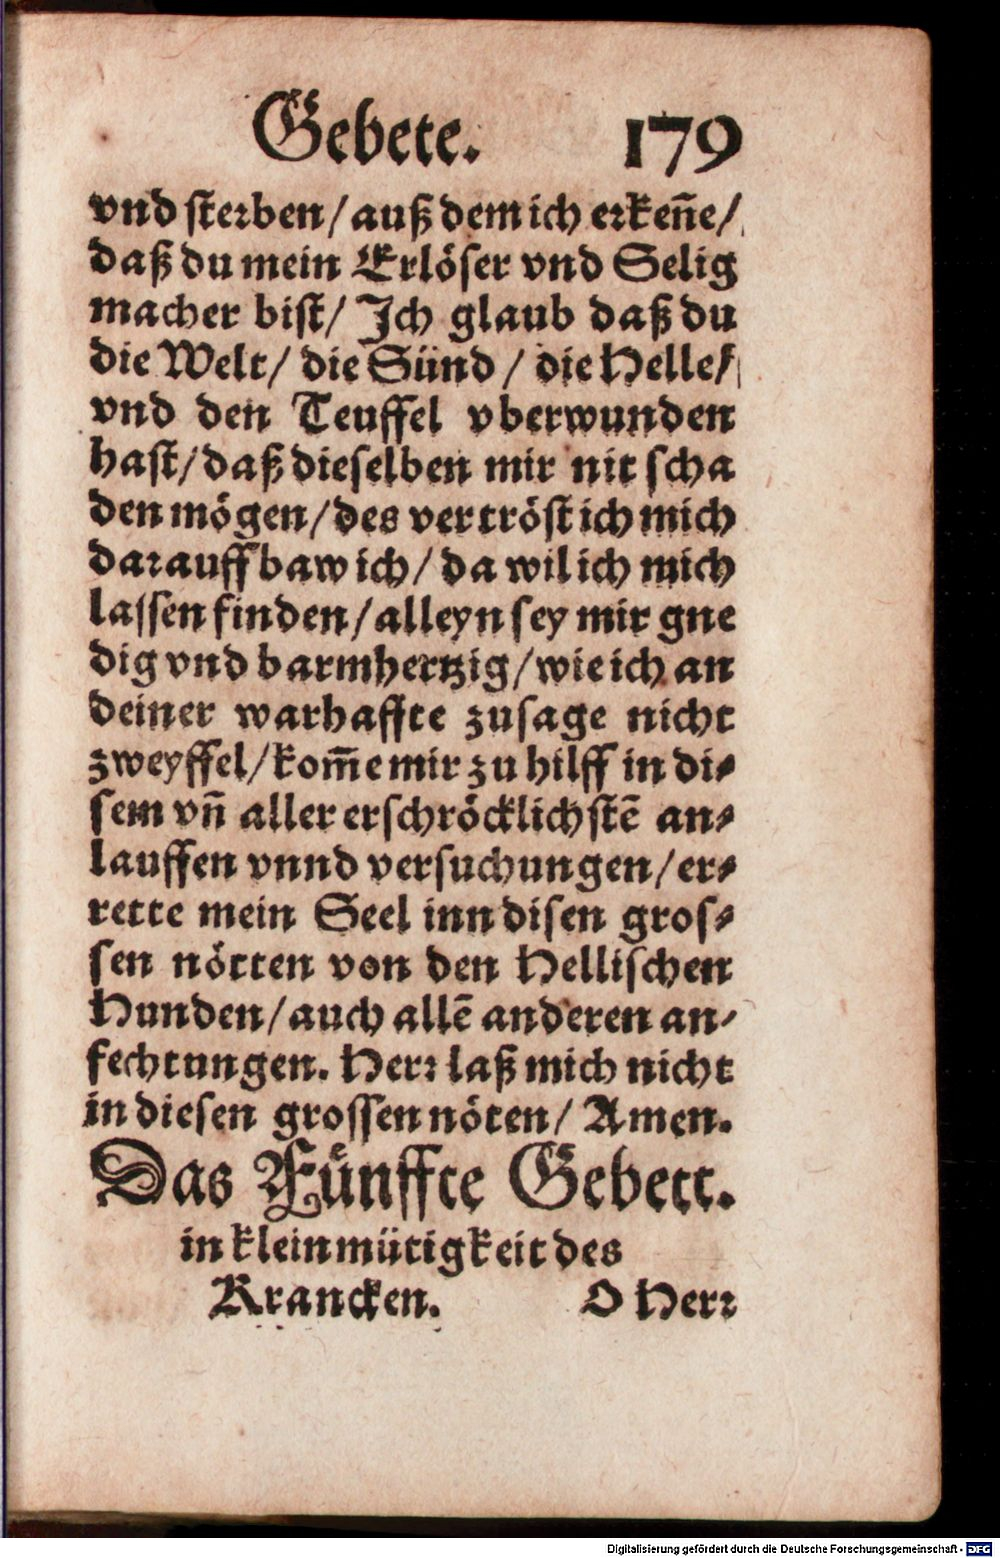 Gebete. 179
vnd sterben/ auß dem ich erkeñe/
daß du mein Erlöser vnd Selig
macher bist/ Ich glaub daß du
die Welt/ die Sünd / die Helle/
vnd den Teuffel vberwunden
hast/ daß dieselben mir nit scha
den mögen/ des vertröst ich mich
darauff baw ich/ da wil ich mich
lassen finden/ alleyn sey mir gne
dig vnd barmhertzig/ wie ich an
deiner warhaffte zusage nicht
zweyffel/ kom̃e mir zu hilff in di-
sem vñ aller erschröcklichstẽ an-
lauffen vnnd versuchungen/ er-
rette mein Seel inn disen gros-
sen nötten von den Hellischen
Hunden/ auch allẽ anderen an-
fechtungen. Herr laß mich nicht
in diesen grossen nöten/ Amen.
Das Fünffte Gebett.
in kleinmütigkeit des
Krancken. O Herr
Digitalisierung gefördert durch die Deutsche Forschungsgemeinschaft - DFG